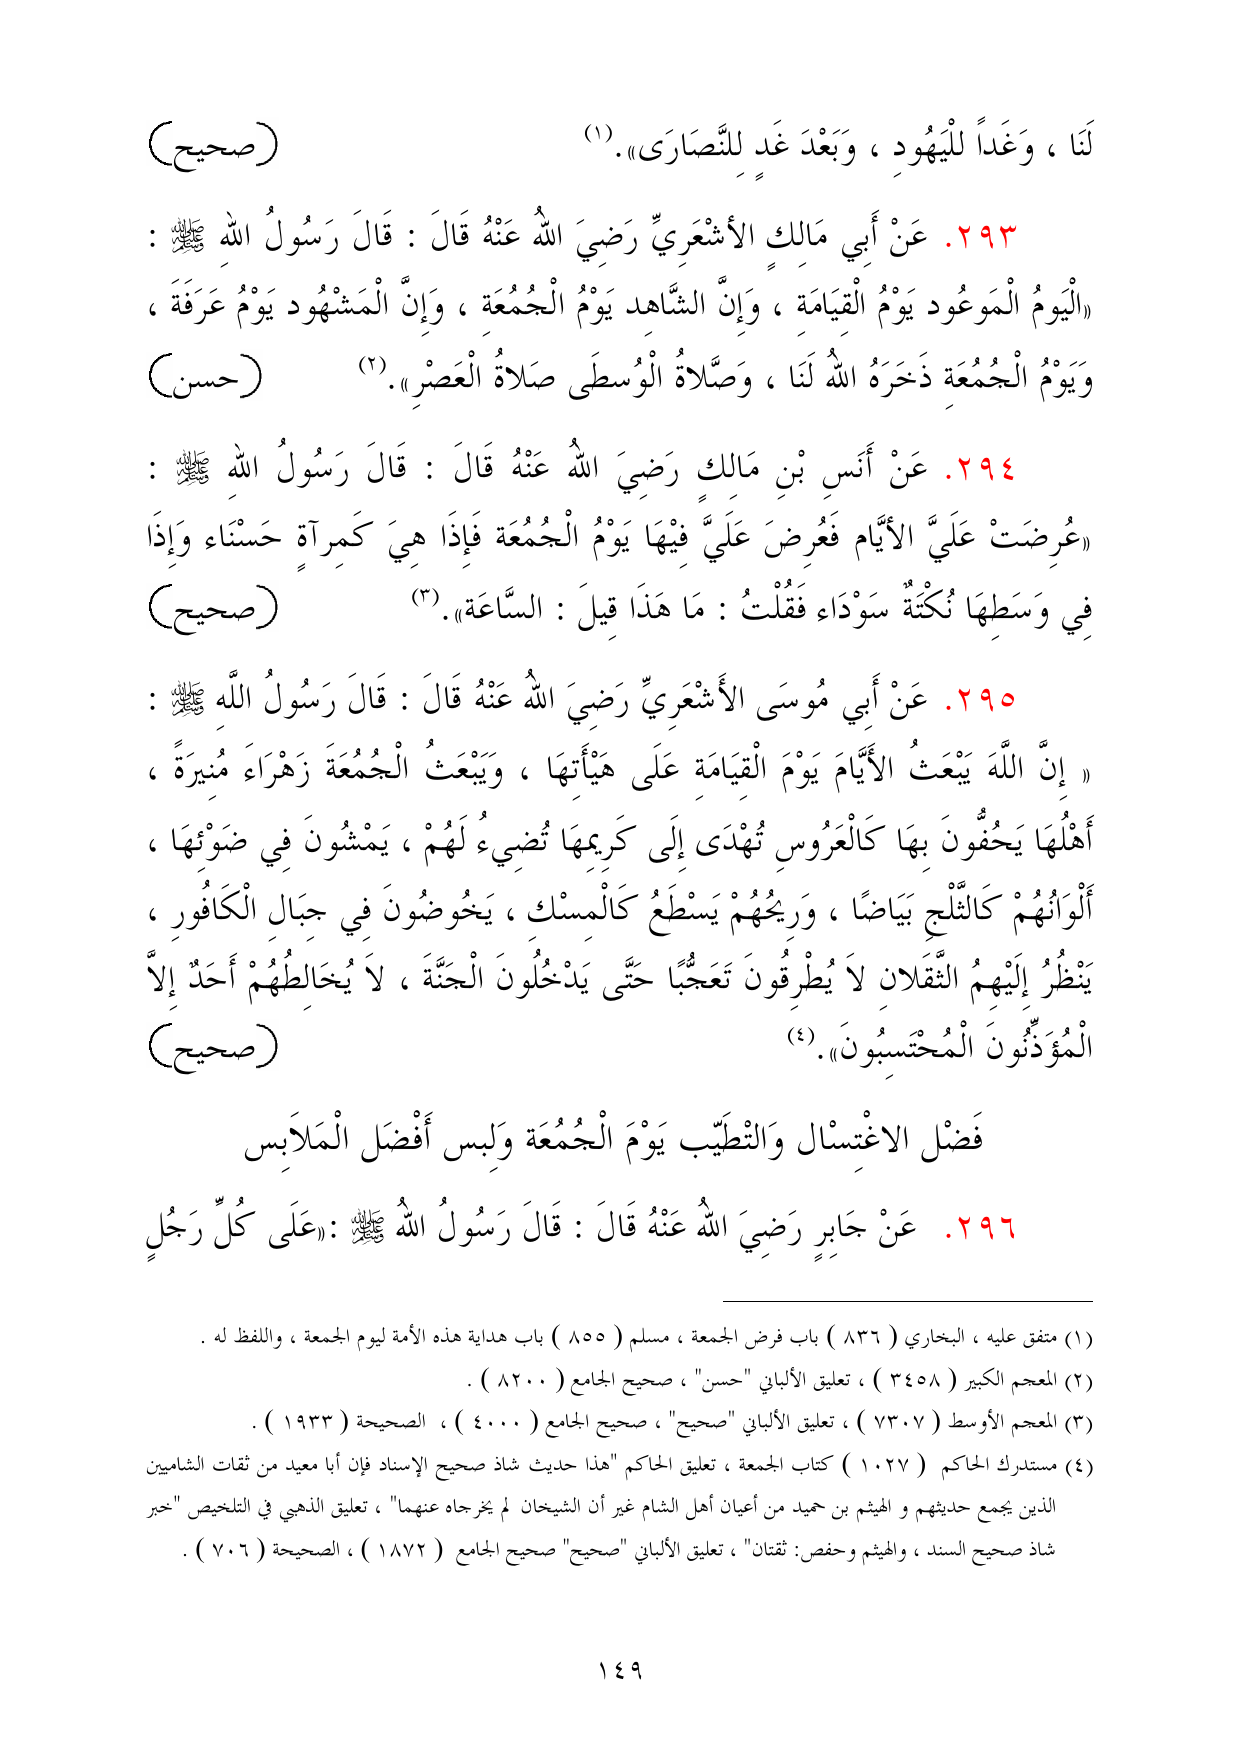 لَنَا ، وَغَداً للْيَهُودِ ، وَبَعْدَ غَدٍ لِلنَّصَارَى».(١) (صحيح)
٢٩٣. عَنْ أَبِي مَالِكٍ الأشْعَرِيِّ رَضِيَ اللهُ عَنْهُ قَالَ : قَالَ رَسُولُ اللهِ ﷺ :
«الْيَومُ الْمَوعُود يَوْمُ الْقِيَامَةِ ، وَإِنَّ الشَّاهِد يَوْمُ الْجُمُعَةِ ، وَإِنَّ الْمَشْهُود يَوْمُ عَرَفَةَ ،
وَيَوْمُ الْجُمُعَةِ ذَخَرَهُ اللهُ لَنَا ، وَصَّلاةُ الْوُسطَى صَلاةُ الْعَصْرِ».(٢) (حسن)
٢٩٤. عَنْ أَنَسِ بْنِ مَالِكٍ رَضِيَ اللهُ عَنْهُ قَالَ : قَالَ رَسُولُ اللهِ ﷺ :
«عُرِضَتْ عَلَيَّ الأيَّام فَعُرِضَ عَلَيَّ فِيْهَا يَوْمُ الْجُمُعَة فَإِذَا هِيَ كَمِرآةٍ حَسْنَاء وَإِذَا
فِي وَسَطِهَا نُكْتَةٌ سَوْدَاء فَقُلْتُ : مَا هَذَا قِيلَ : السَّاعَة».(٣) (صحيح)
٢٩٥. عَنْ أَبِي مُوسَى الأَشْعَرِيِّ رَضِيَ اللهُ عَنْهُ قَالَ : قَالَ رَسُولُ اللَّهِ ﷺ :
« إِنَّ اللَّهَ يَبْعَثُ الأَيَّامَ يَوْمَ الْقِيَامَةِ عَلَى هَيْأَتِهَا ، وَيَبْعَثُ الْجُمُعَةَ زَهْرَاءَ مُنِيرَةً ،
أَهْلُهَا يَحُفُّونَ بِهَا كَالْعَرُوسِ تُهْدَى إِلَى كَرِيمِهَا تُضِيءُ لَهُمْ ، يَمْشُونَ فِي ضَوْئِهَا ،
أَلْوَانُهُمْ كَالثَّلْجِ بَيَاضًا ، وَرِيحُهُمْ يَسْطَعُ كَالْمِسْكِ ، يَخُوضُونَ فِي جِبَالِ الْكَافُورِ ،
يَنْظُرُ إِلَيْهِمُ الثَّقَلانِ لاَ يُطْرِقُونَ تَعَجُّبًا حَتَّى يَدْخُلُونَ الْجَنَّةَ ، لاَ يُخَالِطُهُمْ أَحَدٌ إِلاَّ
الْمُؤَذِّنُونَ الْمُحْتَسِبُونَ».(٤) (صحيح)
فَضْل الاغْتِسْال وَالتْطَيّب يَوْمَ الْجُمُعَة وَلبِس أَفْضَل الْمَلاَبِس
٢٩٦. عَنْ جَابِرٍ رَضِيَ اللهُ عَنْهُ قَالَ : قَالَ رَسُولُ اللهُ ﷺ :«عَلَى كُلِّ رَجُلٍ
(١) متفق عليه ، البخاري ( ٨٣٦ ) باب فرض الجمعة ، مسلم ( ٨٥٥ ) باب هداية هذه الأمة ليوم الجمعة ، واللفظ له .
(٢) المعجم الكبير ( ٣٤٥٨ ) ، تعليق الألباني "حسن" ، صحيح الجامع ( ٨٢٠٠ ) .
(٣) المعجم الأوسط ( ٧٣٠٧ ) ، تعليق الألباني "صحيح" ، صحيح الجامع ( ٤٠٠٠ ) ، الصحيحة ( ١٩٣٣ ) .
(٤) مستدرك الحاكم ( ١٠٢٧ ) كتاب الجمعة ، تعليق الحاكم "هذا حديث شاذ صحيح الإسناد فإن أبا معيد من ثقات الشاميين
الذين يجمع حديثهم و الهيثم بن حميد من أعيان أهل الشام غير أن الشيخان لم يخرجاه عنهما" ، تعليق الذهبي في التلخيص "خبر
شاذ صحيح السند ، والهيثم وحفص: ثقتان" ، تعليق الألباني "صحيح" صحيح الجامع ( ١٨٧٢ ) ، الصحيحة ( ٧٠٦ ) .
١٤٩